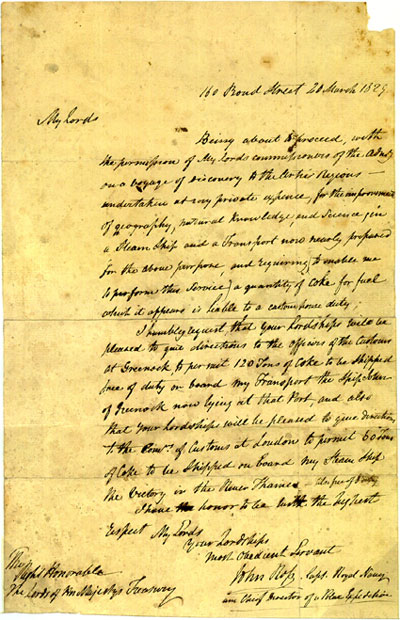 160 Bond Street 20 March 1829
My Lords
Being about to proceed, with
the permission of My Lords commissioners of the Admty
on a voyage of discovery to the Arctic Regions —
undertaken at my private expense, for the improvement
of geography, natural knowledge, and Science, in
a Steam Ship and a Transport now nearly prepared
for the above purpose, and requiring (to enable me
to perform this Service) a quantity of Coke for fuel
which it appears is liable to a custom house duty;
I humbly request that your Lordships will be
pleased to give directions to the officers of the Customs
at Greenock to permit 120 Tons of Coke to be Shipped
free of duty on board my Transport the Ship John
of Greenock now lying at that Port, and also
that your Lordships will be pleased to give directions
to the Comrs of Customs at London to permit 60 Tons
of Coke to be Shipped on board my Steam Ship
the Victory in the River Thames free of Duty
I have the honor to be with the highest
respect My Lords
Your Lordships
most obedient Servant
John Ross Capt. Royal Navy
and Chief Director of the Expedition
The
Right Honorable
The Lords of His Majestys Treasury